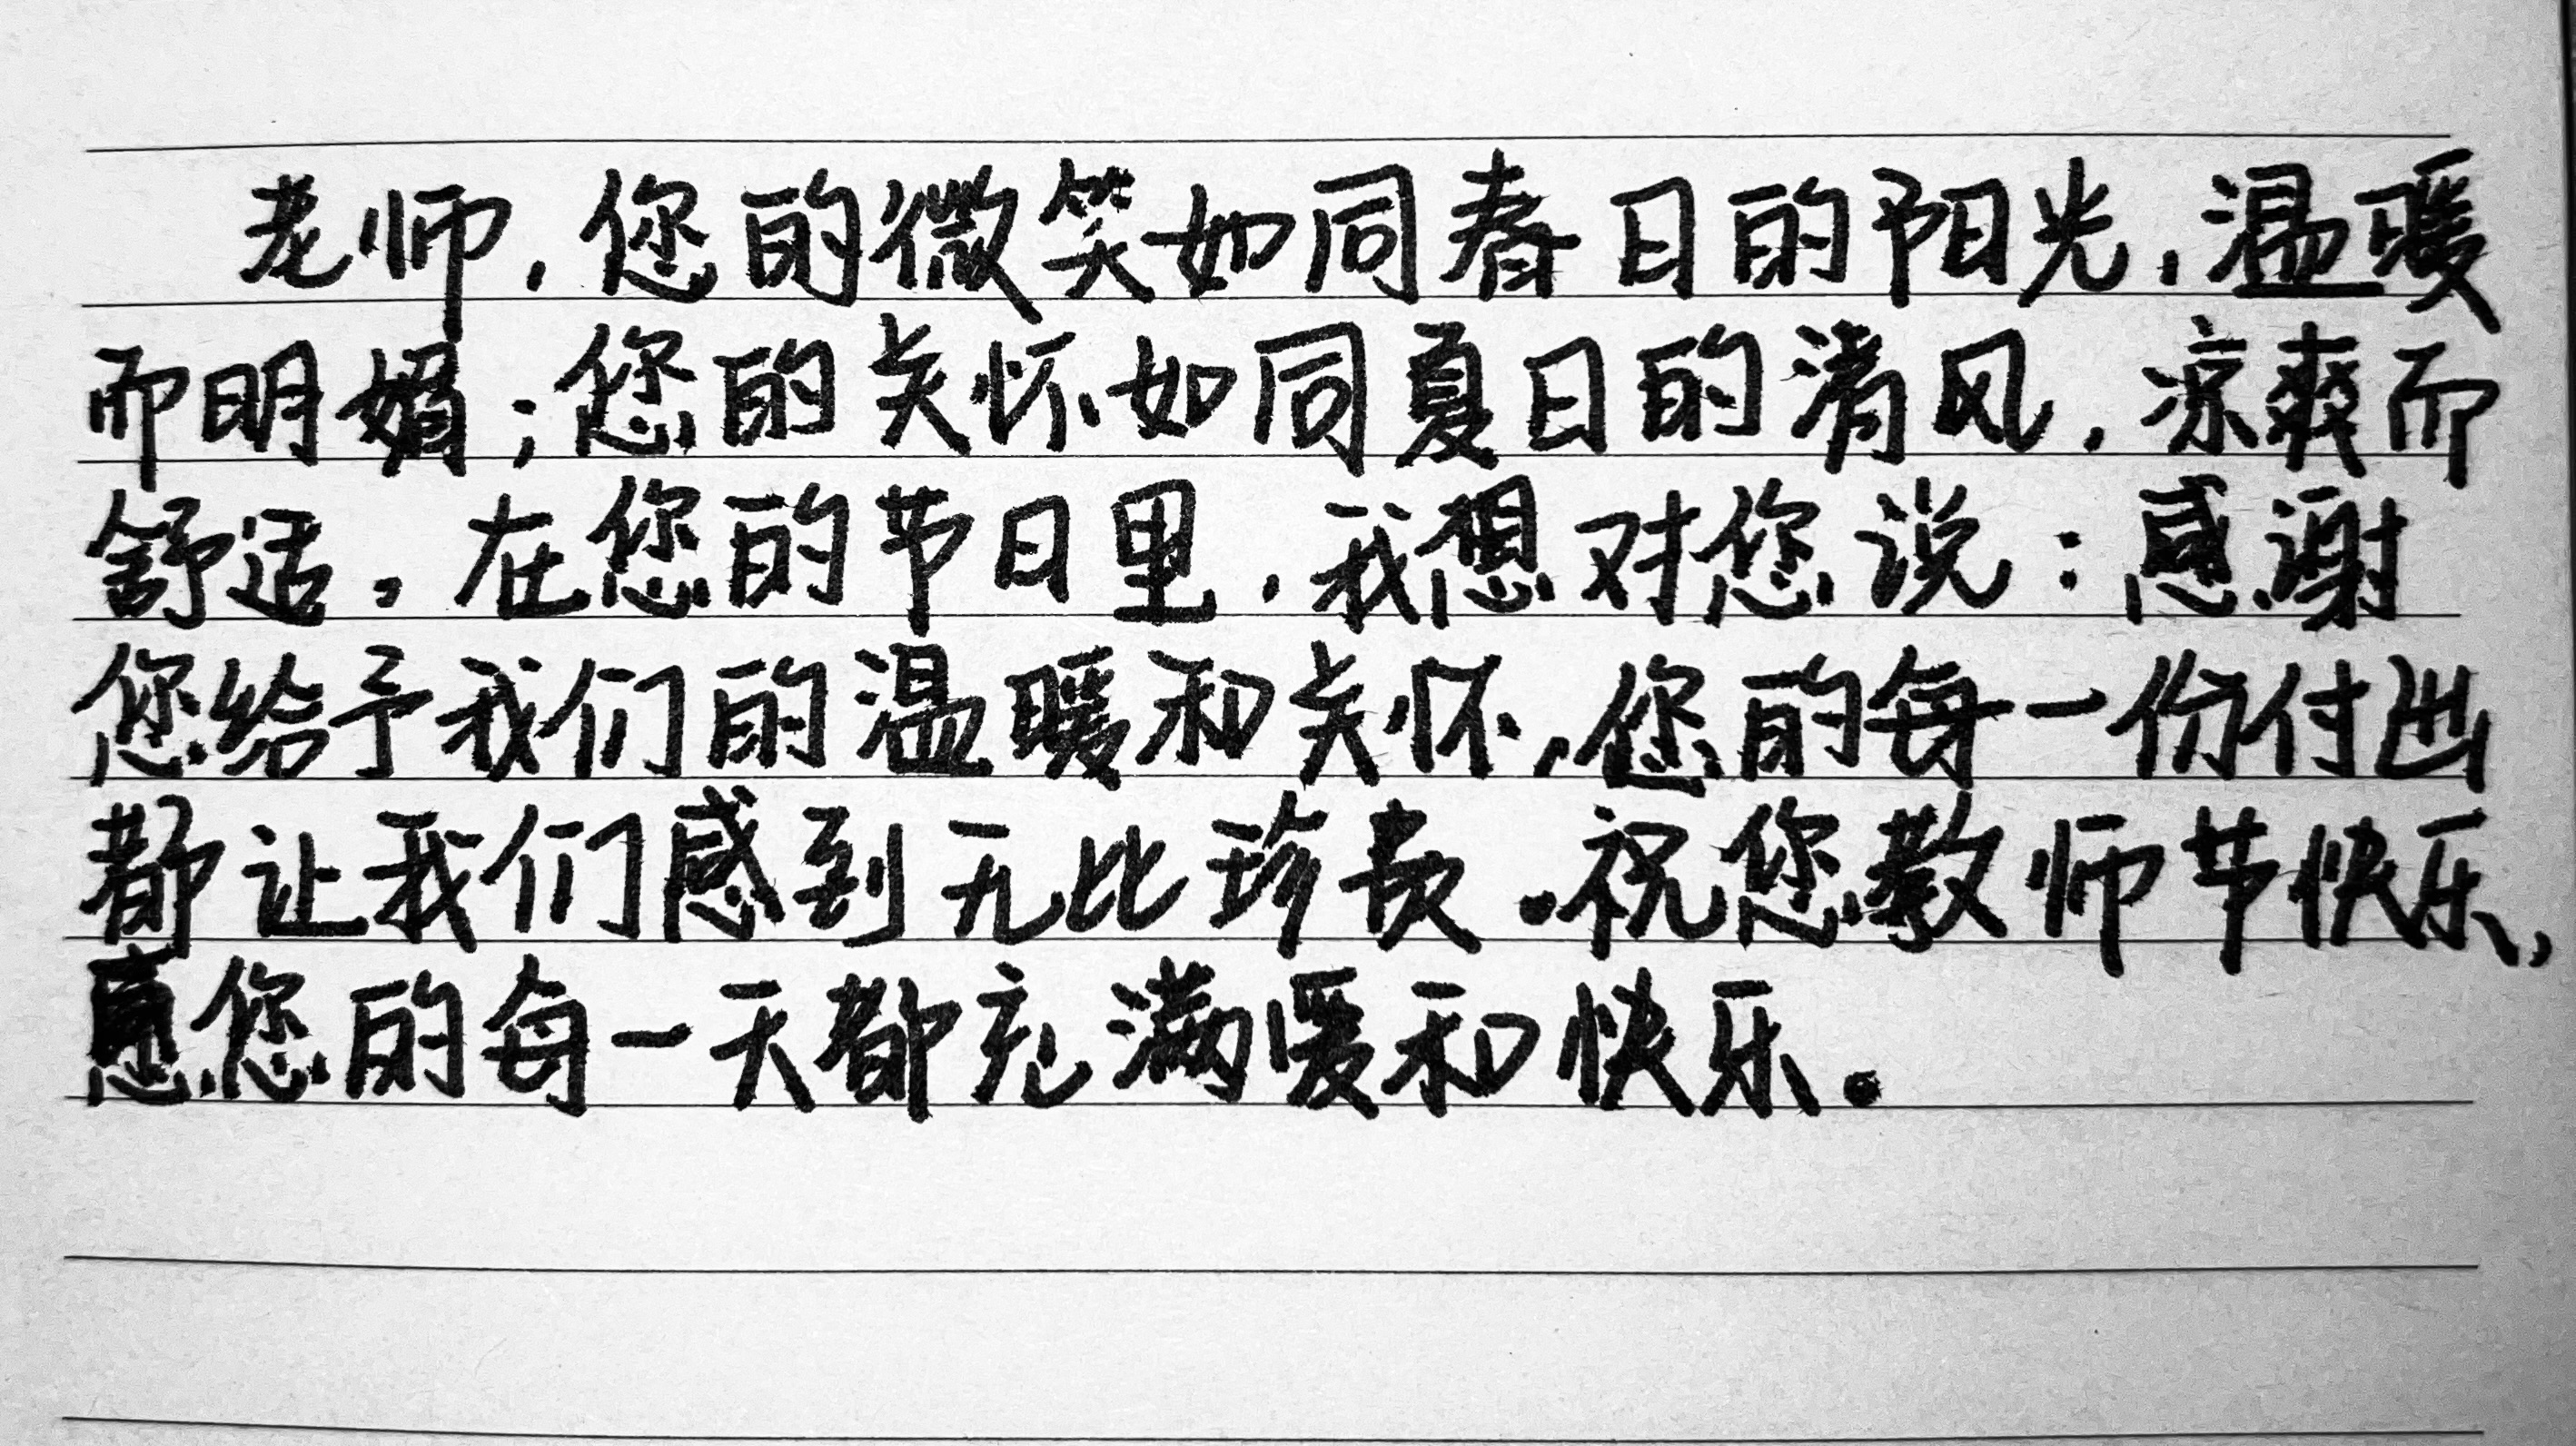 老师，您的微笑如同春日的阳光，温暖
而明媚；您的关怀如同夏日的清风，凉爽而
舒适。在您的节日里，我想对您说：感谢
您给予我们的温暖和关怀，您的每一份付出
都让我们感到无比珍贵。祝您教师节快乐，
愿您的每一天都充满暖和快乐。